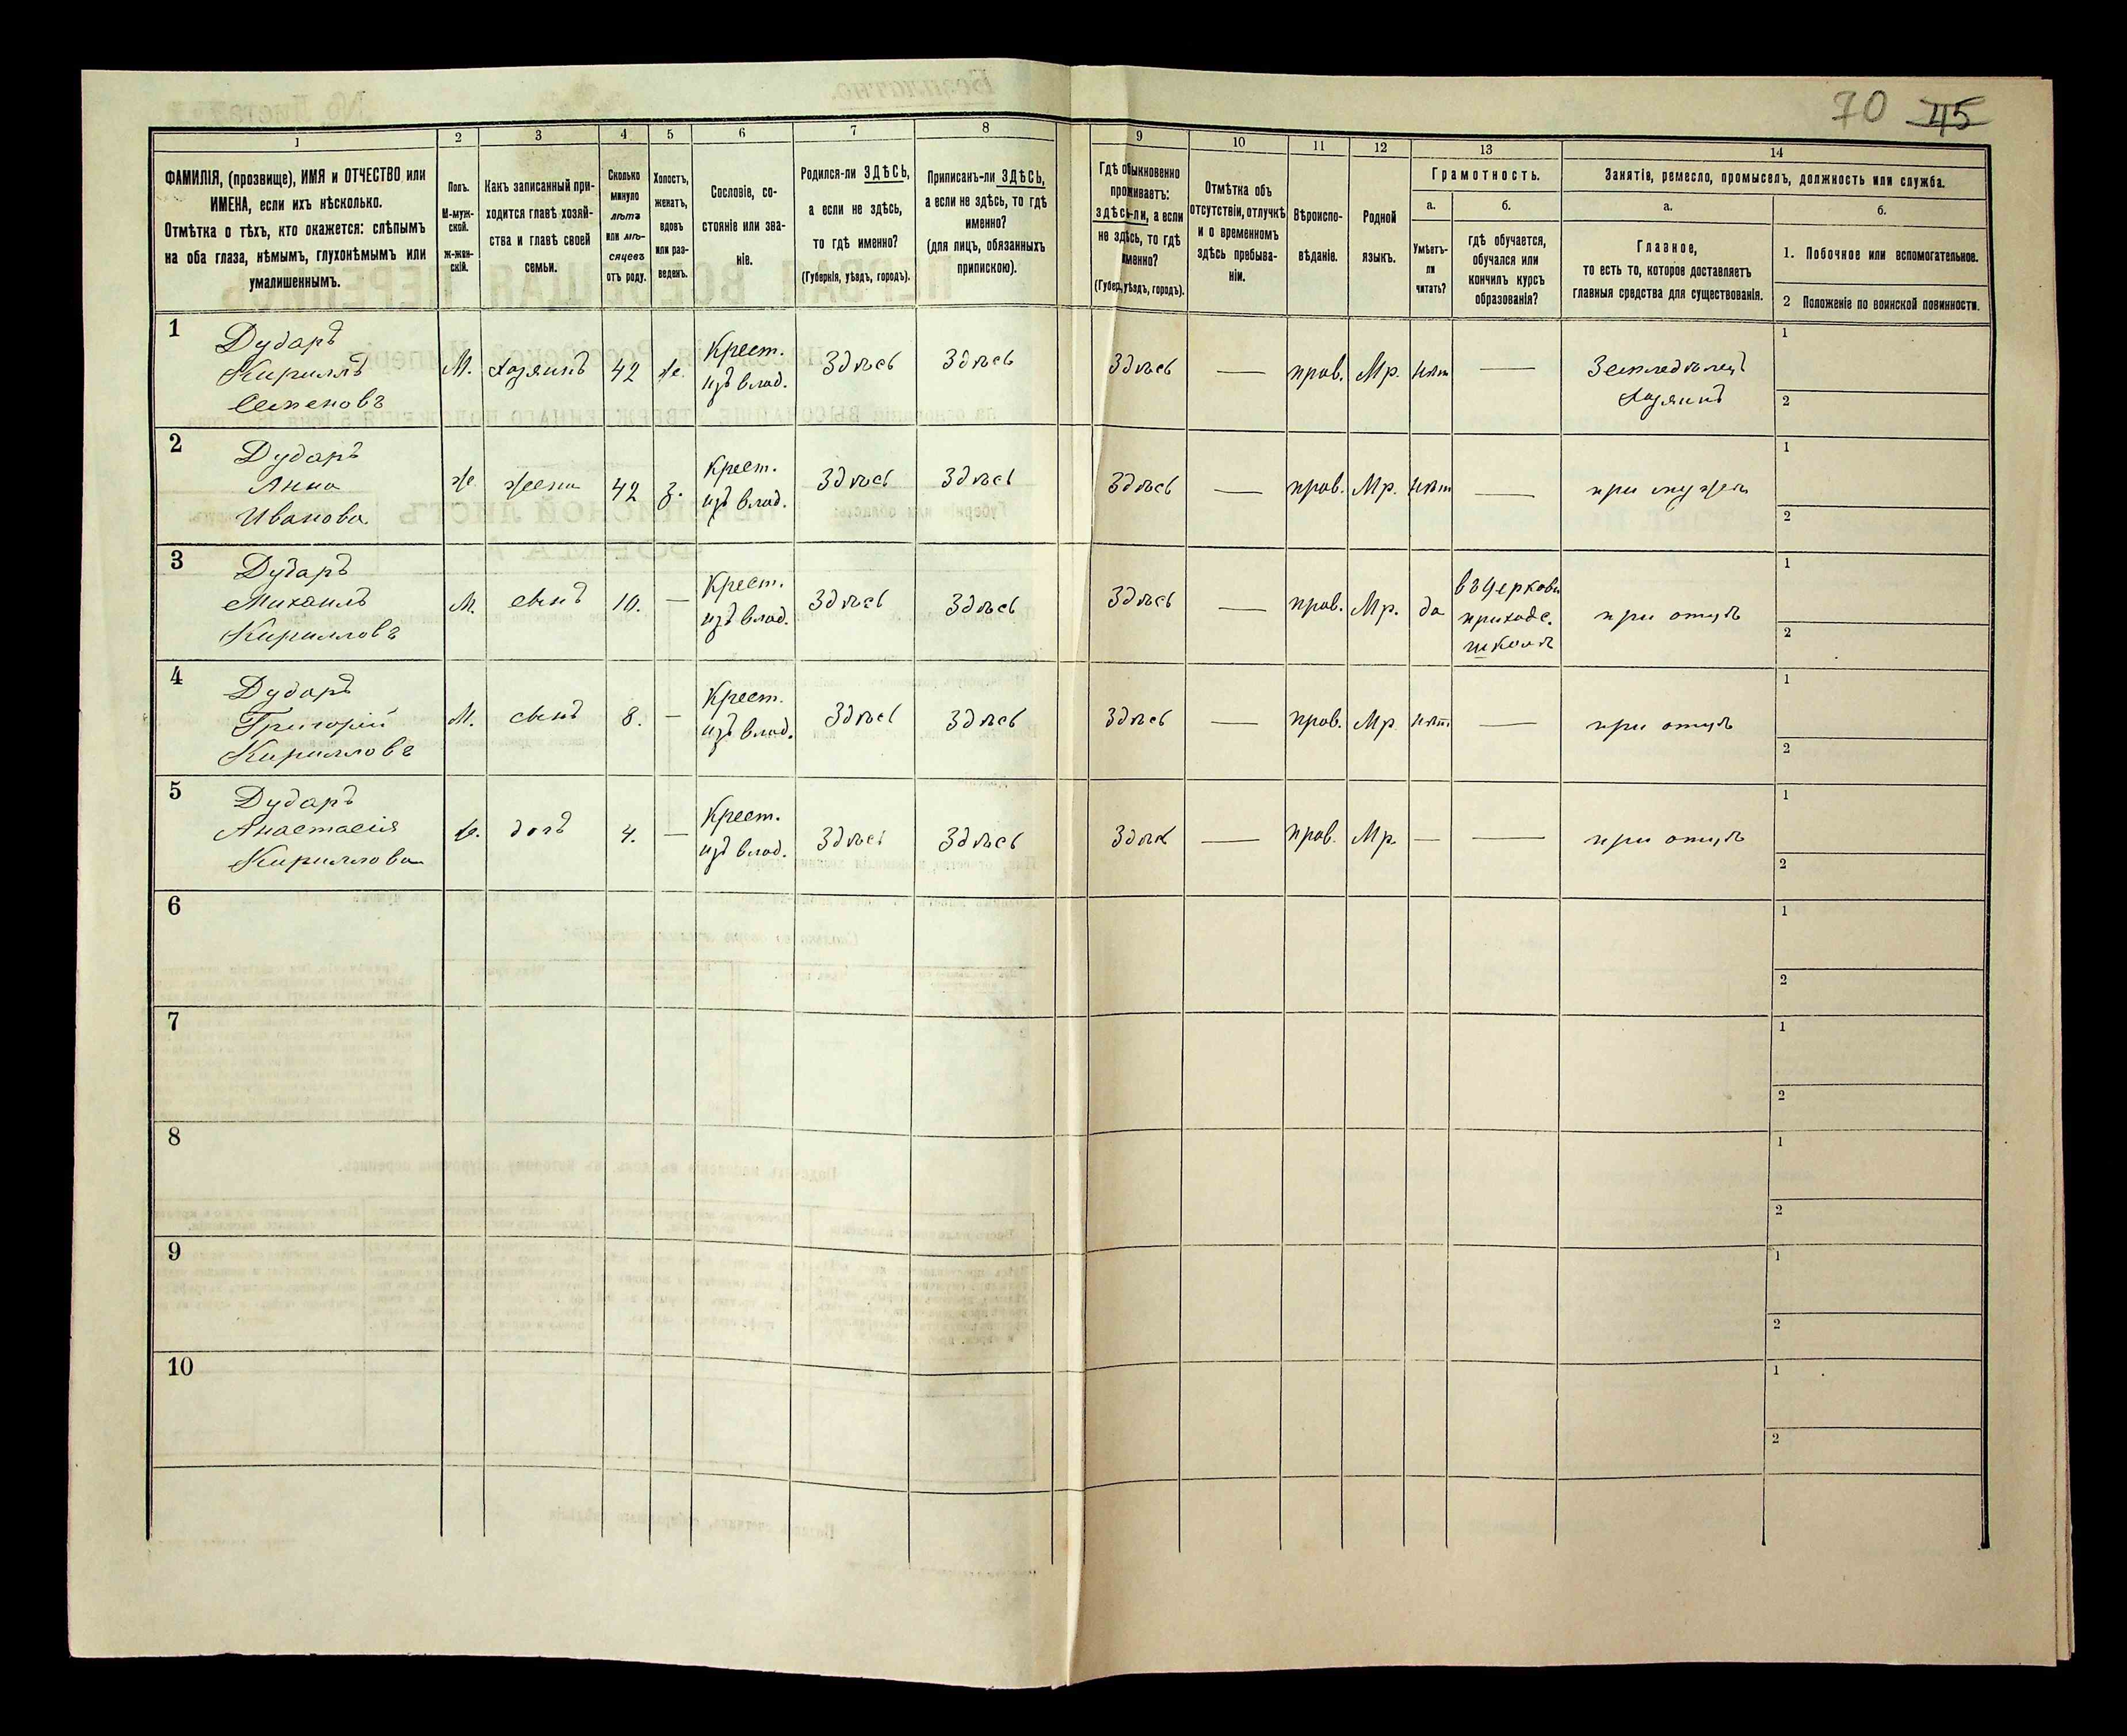 70 45
1 2 3 4 5 6 7 8 9 10 11 12 13 14
ФАМИЛІЯ, (прозвище), ИМЯ и ОТЧЕСТВО или
ИМЕНА, если ихъ нѣсколько.
Отмѣтка о тѣхъ, кто окажется: слѣпымъ
на оба глаза, нѣмымъ, глухонѣмымъ или
умалишеннымъ.
Полъ.
М-муж-
ской.
Ж-жен-
скій.
Какъ записанный при-
ходится главѣ хозяй-
ства и главѣ своей
семьи.
Сколько
минуло
лѣтъ
или мѣ-
сяцевъ
отъ роду.
Холостъ,
женатъ,
вдовъ
или раз-
веденъ.
Сословіе, со-
стояніе или зва-
ніе.
Родился-ли ЗДѢСЬ,
а если не здѣсь,
то гдѣ именно?
(Губернія, уѣздъ, городъ).
Приписанъ-ли ЗДѢСЬ,
а если не здѣсь, то гдѣ
именно?
(для лицъ, обязанныхъ
припискою).
Гдѣ обыкновенно
проживаетъ:
здѣсь-ли, а если
не здѣсь, то гдѣ
именно?
(Губер., уѣздъ, городъ).
Отмѣтка объ
отсутствіи, отлучкѣ
и о временномъ
здѣсь пребыва-
ніи.
Вѣроиспо-
вѣданіе.
Родной
языкъ.
Грамотность.
а.
Умѣетъ-
ли
читать?
б.
гдѣ обучается,
обучался или
кончилъ курсъ
образованія?
Занятіе, ремесло, промыселъ, должность или служба.
а.
Главное,
то есть то, которое доставляетъ
главныя средства для существованія.
б.
1. Побочное или вспомогательное.
2 Положеніе по воинской повинности.
1
Дударъ
Кириллъ
Семеновъ
М.
хозяинъ
42
ж.
Крест.
изъ влад.
Здѣсь
Здѣсь
Здѣсь
—
прав.
Мр.
нѣт
—
Земледѣлец
хозяинъ
1
2
2
Дударъ
Анна
Иванова
ж.
жена
42
з.
Крест.
изъ влад.
Здѣсь
Здѣсь
Здѣсь
—
прав.
Мр.
нѣт
—
при мужѣ
1
2
3
Дударъ
Михаилъ
Кирилловъ
М.
сынъ
10.
—
Крест.
изъ влад.
Здѣсь
Здѣсь
Здѣсь
—
прав.
Мр.
да
въ церковн
приходс.
школѣ
при отцѣ
1
2
4
Дударъ
Григорій
Кирилловъ
М.
сынъ
8.
—
Крест.
изъ влад.
Здѣсь
Здѣсь
Здѣсь
—
прав.
Мр
нѣт.
—
при отцѣ
1
2
5
Дударъ
Анастасія
Кириллова
ж.
дочъ
4.
—
Крест.
изъ влад.
Здѣсь
Здѣсь
Здѣсь
—
прав.
Мр.
—
—
при отцѣ
1
2
6
1
2
7
1
2
8
1
2
9
1
2
10
1
2